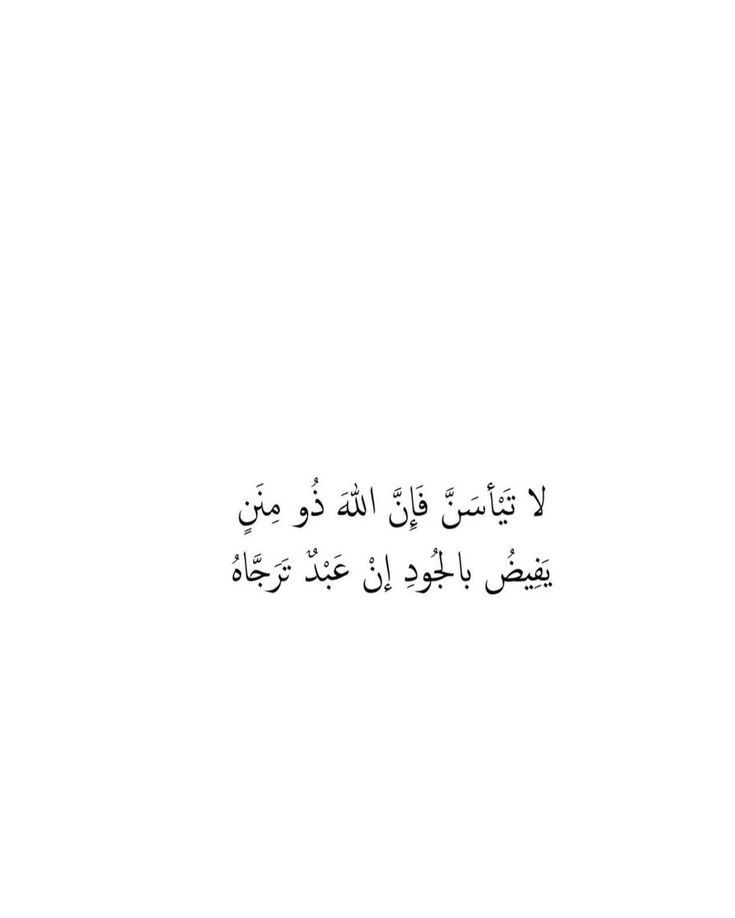 لا تَيْأسَنَّ فَإِنَّ اللهَ ذُو مِنَنٍ
يَفِيضُ بالجُودِ إنْ عَبْدٌ تَرَجَّاهُ